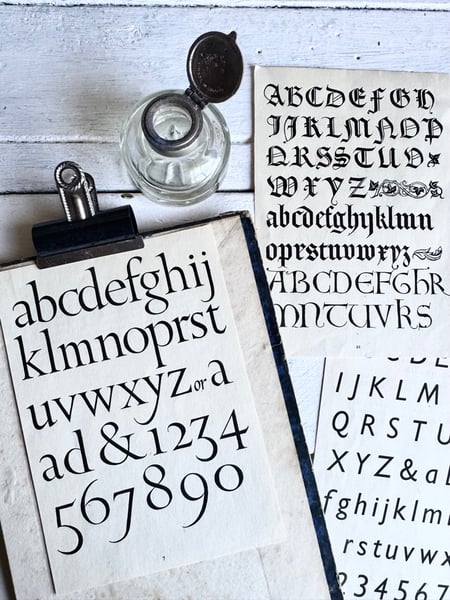 abcdefghij
klmnoprst
uvwxyz or a
ad & 1234
567890
7
ABCDEFGH
IJKLMNOP
QRSSTUV
WXYZ
abcdefghijklmn
oprstuvwxyz
ABCDEFGHR
MNTUVKS
IJKLM
QRSTU
XYZ&ab
fghijklm
rstuvwx
234567